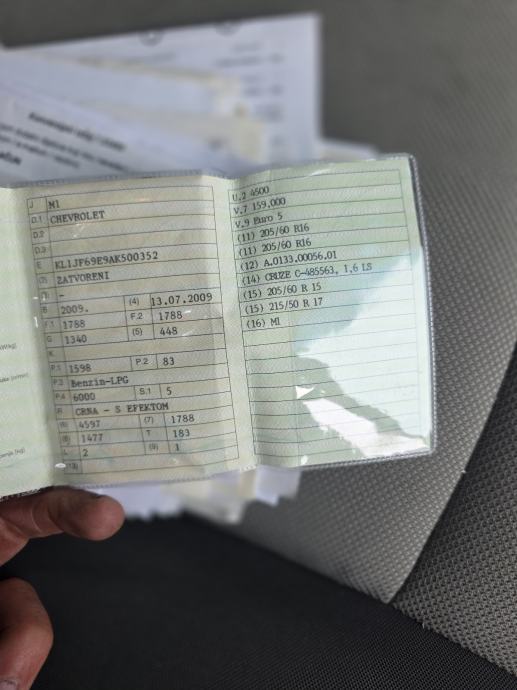 J M1
D.1 CHEVROLET
D.2
D.3
E KL1JF69E9AK500352
(2) ZATVORENI
(3) -
B 2009. (4) 13.07.2009
F.1 1788 F.2 1788
G 1340 (5) 448
K
P.1 1598 P.2 83
P.3 Benzin-LPG
P.4 6000 S.1 5
R CRNA - S EFEKTOM
(6) 4597 (7) 1788
(8) 1477 T 183
L 2 (9) 1
U.2 4500
V.7 159,000
V.9 Euro 5
(11) 205/60 R16
(11) 205/60 R16
(12) A.0133.00056.01
(14) CRUZE C-485563, 1,6 LS
(15) 205/60 R 15
(15) 215/50 R 17
(16) M1